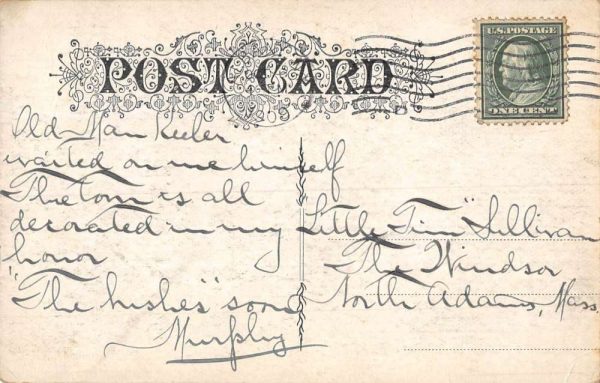 POST CARD
U.S. POSTAGE
ONE CENT
1909
Old Man Keeler
waited on me himself
The Town is all
decorated in my
honor
"The kishes" soon
Murphy
"Little Tim" Sullivan
The Windsor
North Adams, Mass.